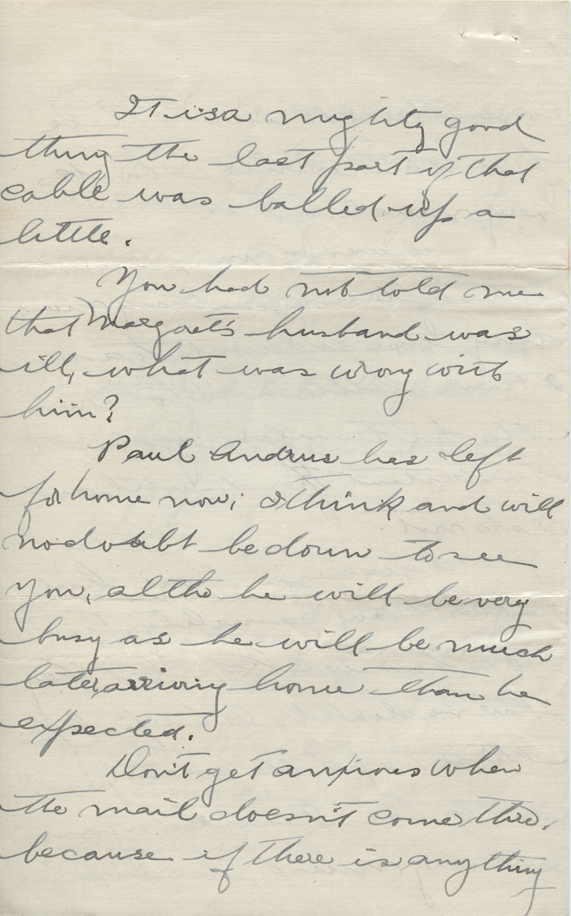 It is a mighty good
thing the last part of that
cable was balled up a
little.
You had not told me
that Margaret's husband was
ill, what was wrong with
him?
Paul Andrus has left
for home now; I think and will
no doubt be down to see
you, altho he will be very
busy as he will be much
later arriving home than he
expected.
Don't get anxious when
the mail doesn't come thro,
because if there is anything